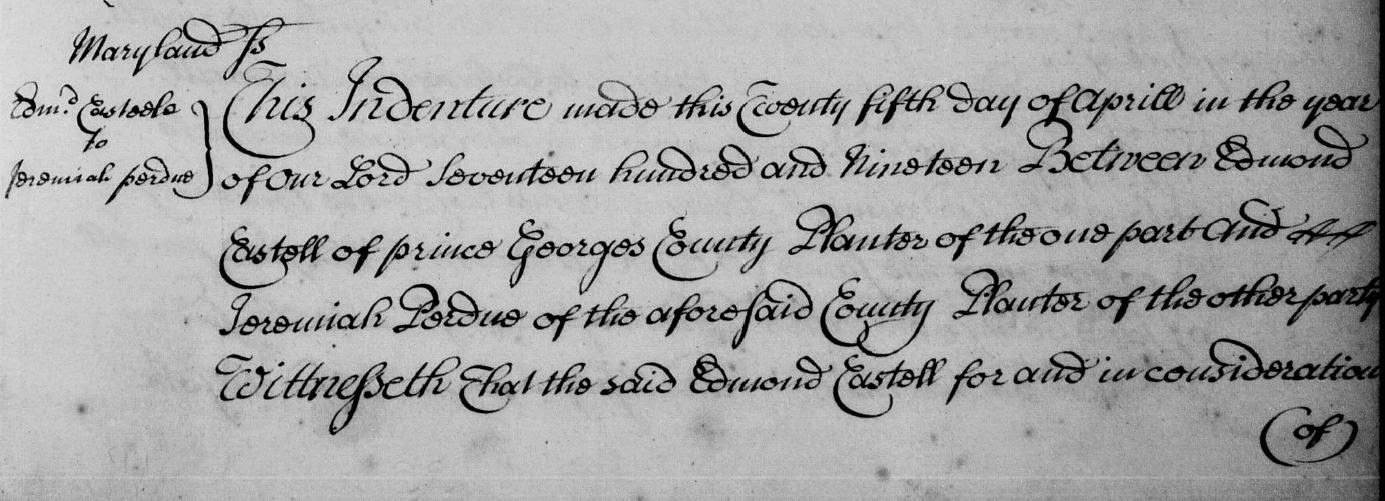 Maryland ſs
Edmd. Easteele
to
Jeremiah perdue
This Indenture made this Twenty fifth day of Aprill in the year
of our Lord Seventeen hundred and Nineteen Between Edmond
Eastell of prince Georges County Planter of the one part And
Jeremiah Perdue of the aforesaid County Planter of the other party
Wittnesseth That the said Edmond Eastell for and in consideration
(of)